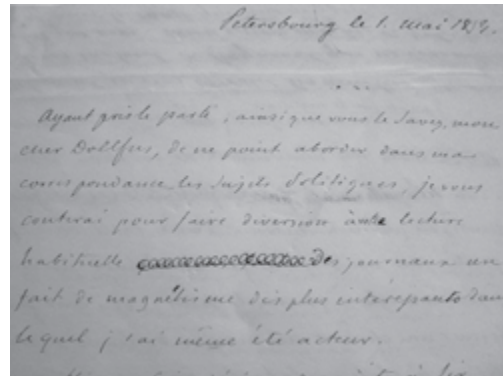 Petersbourg le 1. Mai 1859.
Ayant pris le parti, ainsi que vous le savez, mon
cher Dollfus, de ne point aborder dans ma
correspondance les sujets politiques, je vous
conterai pour faire diversion à votre lecture
habituelle des journaux un
fait de magnétisme des plus intéressants dans
lequel j'ai même été acteur.